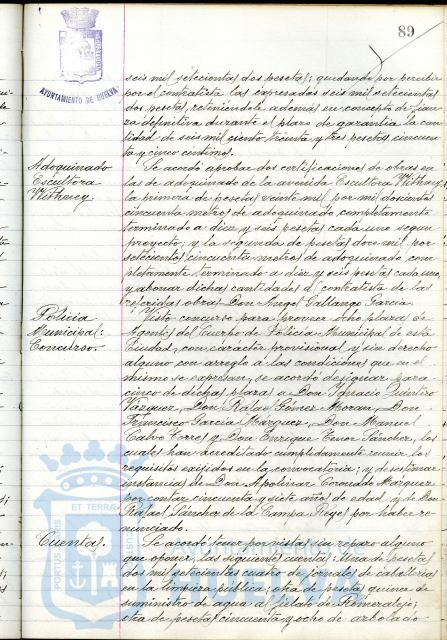 89
AYUNTAMIENTO DE HUELVA
seis mil setecientas dos pesetas; quedando por percibir
por el contratista las expresadas seis mil setecientas
dos pesetas, reteniéndole además en concepto de fian-
za definitiva durante el plazo de garantía la can-
tidad de seis mil ciento treinta y tres pesetas cincuen-
ta y cinco céntimos.
Adoquinado
Escultora
Withney
Se acordó aprobar dos certificaciones de obras en
las de adoquinado de la avenida Escultora Withney,
la primera de pesetas veinte mil por mil doscientos
cincuenta metros de adoquinado completamente
terminado a diez y seis pesetas cada uno según
proyecto; y la segunda de pesetas doce mil por
setecientos cincuenta metros de adoquinado com-
pletamente terminado a diez y seis pesetas cada uno,
y abonar dichas cantidades al contratista de las
referidas obras Don Angel Gallango Garcia.
Policia
Municipal.
Concurso.
Visto concurso para proveer ocho plazas de
Agentes del Cuerpo de Policia Municipal de esta
Ciudad, con carácter provisional y sin derecho
alguno con arreglo a las condiciones que en el
mismo se expresan, se acordó designar para
cinco de dichas plazas a Don Ignacio Quintero
Vazquez, Don Rafael Gómez Moran, Don
Francisco Garcia Márquez, Don Manuel
Calvo Torres y Don Enrique Tenor Sánchez, los
cuales han acreditado cumplidamente reunir los
requisitos exijidos en la convocatoria; y desestimar
instancias de Don Apolinar Coronado Márquez
por contar cincuenta y siete años de edad y de Don
Rafael Sánchez de la Campa Reyes por haber re-
nunciado.
Cuentas.
Se acordó tener por vistas sin reparo alguno
que oponer, las siguientes cuentas: Una de pesetas
dos mil setecientas cuatro de jornales de caballerias
en la limpieza pública; otra de pesetas quince de
suministro de agua a fielato de Romeralejo;
otra de pesetas cincuenta y ocho de arbolado
PORTUS MARIS
ET TERRAE
Ayuntamiento de